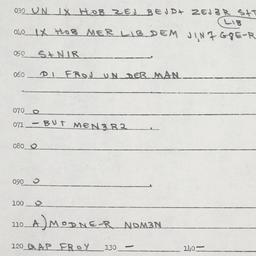 030 UN IX HOB ZEJ BEJD+ ZEJ3R S+T
LIB
040 IX HOB MER LIB DEM JIN7G8E-R
050 S+NIR
060 DI FROJ UN DER MAN
070 O
071 - BUT MEN3R2
080 O
090 O
100 O
110 A) MODNE-R NOM3N
120 GAP FROY 130 - 140 -